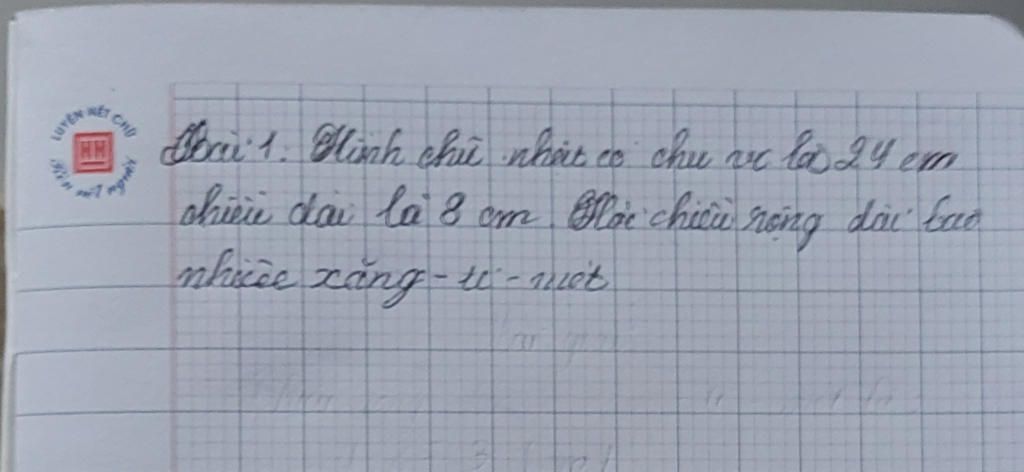 LUYỆN NÉT CHỮ
HH
Bài 1. Hình chữ nhật có chu vi là 24 cm
chiều dài là 8 cm. Hỏi chiều rộng dài bao
nhiêu xăng-ti-mét